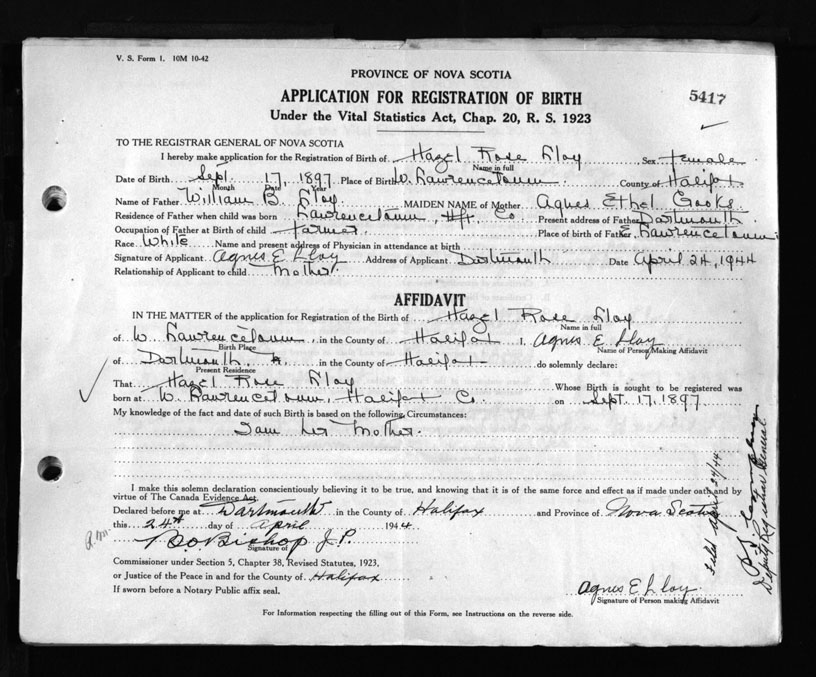 V. S. Form 1. 10M 10-42
PROVINCE OF NOVA SCOTIA
APPLICATION FOR REGISTRATION OF BIRTH
5417
Under the Vital Statistics Act, Chap. 20, R. S. 1923
TO THE REGISTRAR GENERAL OF NOVA SCOTIA
I hereby make application for the Registration of Birth of Hazel Rose Lloy Sex female
Name in full
Date of Birth Sept. 17, 1897 Place of Birth W. Lawrencetown County of Halifax
Month Date Year
Name of Father William B. Lloy MAIDEN NAME of Mother Agnes Ethel Cooks
Residence of Father when child was born Lawrencetown, Hfx. Co Present address of Father Dartmouth
Occupation of Father at Birth of child farmer Place of birth of Father E. Lawrencetown
Race White Name and present address of Physician in attendance at birth
Signature of Applicant Agnes E Lloy Address of Applicant Dartmouth Date April 24, 1944
Relationship of Applicant to child Mother
AFFIDAVIT
IN THE MATTER of the application for Registration of the Birth of Hazel Rose Lloy
Name in full
of W. Lawrencetown, in the County of Halifax I, Agnes E. Lloy
Birth Place Name of Person Making Affidavit
of Dartmouth, in the County of Halifax do solemnly declare:
Present Residence
That Hazel Rose Lloy Whose Birth is sought to be registered was
born at W. Lawrencetown, Halifax Co. on Sept. 17, 1897
My knowledge of the fact and date of such Birth is based on the following Circumstances:
I am her Mother.
I make this solemn declaration conscientiously believing it to be true, and knowing that it is of the same force and effect as if made under oath and by
virtue of The Canada Evidence Act.
Declared before me at Dartmouth in the County of Halifax and Province of Nova Scotia
this 24th day of April 1944
B.O. Bishop J.P.
Signature of
Commissioner under Section 5, Chapter 38, Revised Statutes, 1923,
or Justice of the Peace in and for the County of Halifax
If sworn before a Notary Public affix seal.
Agnes E Lloy
Signature of Person making Affidavit
For Information respecting the filling out of this Form, see Instructions on the reverse side.
Filed April 24/44
Deputy Registrar General